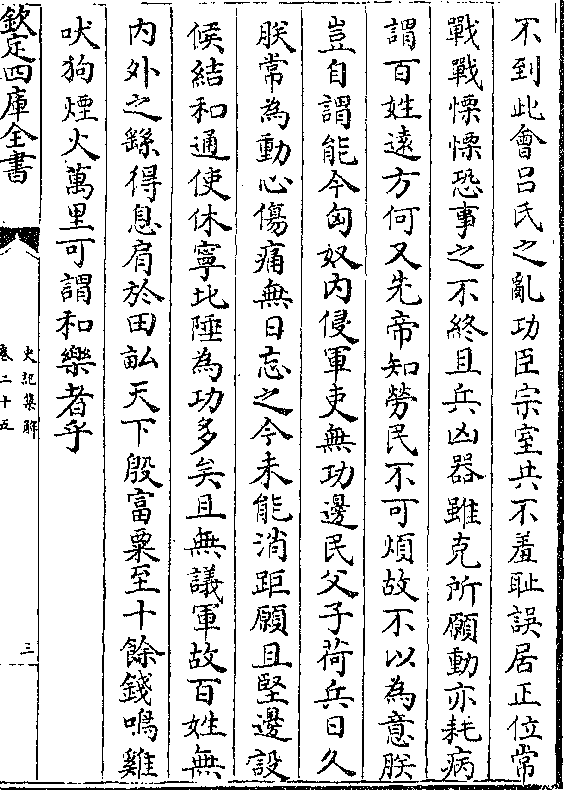 不到此會吕氏之亂功臣宗室共不羞耻誤居正位常
戰戰慄慄恐事之不終且兵凶器雖克所願動亦耗病
謂百姓遠方何又先帝知勞民不可煩故不以為意朕
豈自謂能今匈奴内侵軍吏無功邊民父子荷兵日久
朕常為動心傷痛無日忘之今未能消距願且堅邊設
候結和通使休寧北陲為功多矣且無議軍故百姓無
内外之繇得息肩於田畝天下殷富粟至十餘錢鳴雞
吠狗煙火萬里可謂和樂者乎
欽定四庫全書
史記集解
卷二十五
三